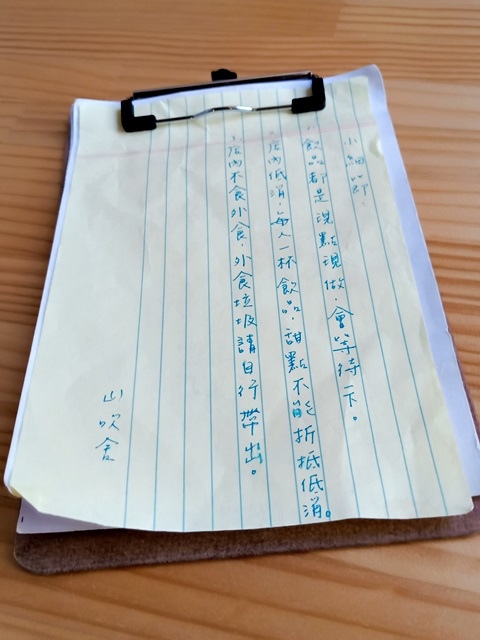 小細節：
1. 飲品都是現點現做，會等待一下。
2. 店內低消，每人一杯飲品，甜點不能折抵低消。
3. 店內不食外食，外食垃圾請自行帶出。
山吹舍